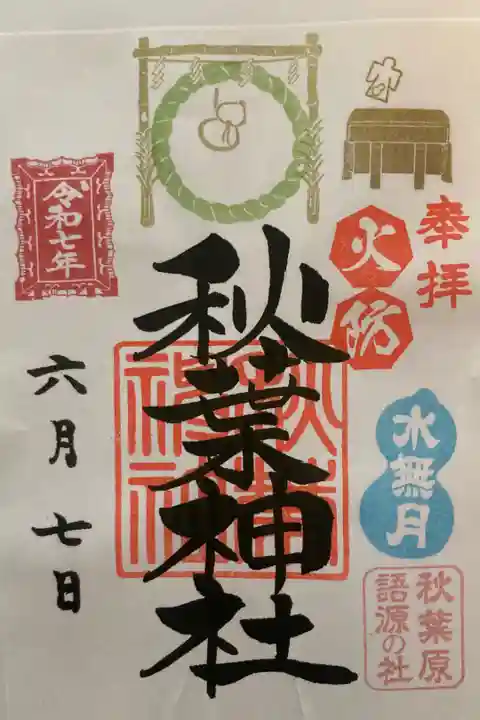 奉拝
火防
水無月
秋葉原
語源の社
秋葉神社
秋葉神社
令和七年
六月七日